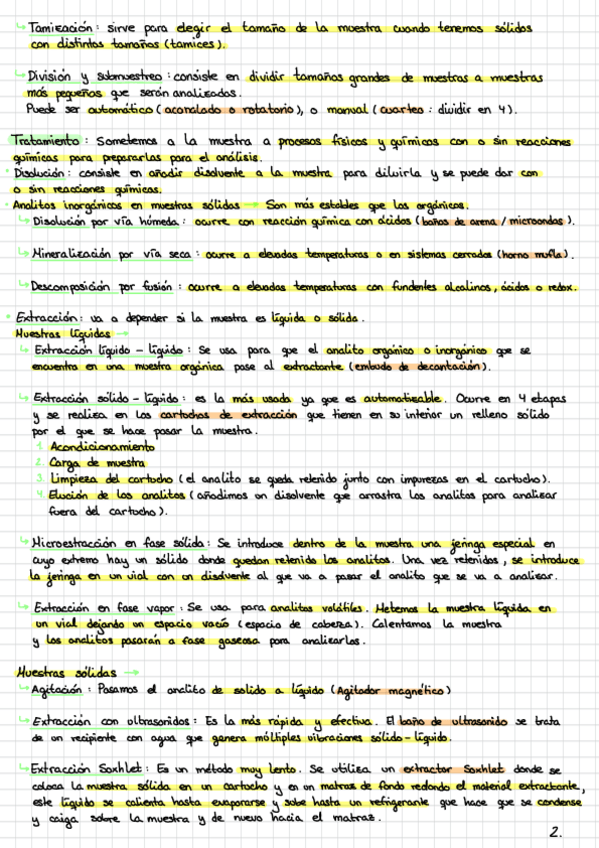 ↳ Tamización: sirve para elegir el tamaño de la muestra cuando tenemos sólidos
con distintos tamaños (tamices).
↳ División y submuestreo: consiste en dividir tamaños grandes de muestras a muestras
más pequeños que serán analizadas.
Puede ser automático (acanalado o rotatorio), o manual (cuarteo: dividir en 4).
Tratamiento: Sometemos a la muestra a procesos físicos y químicos con o sin reacciones
químicas para prepararlas para el análisis.
• Disolución: consiste en añadir disolvente a la muestra para diluirla y se puede dar con
o sin reacciones químicas.
• Analitos inorgánicos en muestras sólidas → Son más estables que los orgánicos.
↳ Disolución por vía húmeda: ocurre con reacción química con ácidos (baños de arena / microondas).
↳ Mineralización por vía seca: ocurre a elevadas temperaturas o en sistemas cerrados (horno mufla).
↳ Descomposición por fusión: ocurre a elevadas temperaturas con fundentes alcalinos, ácidos o redox.
• Extracción: va a depender si la muestra es líquida o sólida.
Muestras líquidas →
↳ Extracción líquido-líquido: Se usa para que el analito orgánico o inorgánico que se
encuentra en una muestra orgánica pase al extractante (embudo de decantación).
↳ Extracción sólido-líquido: es la más usada ya que es automatizable. Ocurre en 4 etapas
y se realiza en los cartuchos de extracción que tienen en su interior un relleno sólido
por el que se hace pasar la muestra.
1. Acondicionamiento
2. Carga de muestra
3. Limpieza del cartucho (el analito se queda retenido junto con impurezas en el cartucho).
4. Elución de los analitos (añadimos un disolvente que arrastra los analitos para analizar
fuera del cartucho).
↳ Microestracción en fase sólida: Se introduce dentro de la muestra una jeringa especial en
cuyo extremo hay un sólido donde quedan retenido los analitos. Una vez retenidos, se introduce
la jeringa en un vial con un disolvente al que va a pasar el analito que se va a analizar.
↳ Extracción en fase vapor: Se usa para analitos volátiles. Metemos la muestra líquida en
un vial dejando un espacio vacío (espacio de cabeza). Calentamos la muestra
y los analitos pasarán a fase gaseosa para analizarlos.
Muestras sólidas →
↳ Agitación: Pasamos el analito de solido a líquido (Agitador magnético)
↳ Extracción con ultrasonidos: Es la más rápida y efectiva. El baño de ultrasonido se trata
de un recipiente con agua que genera múltiples vibraciones sólido-líquido.
↳ Extracción Soxhlet: Es un método muy lento. Se utiliza un extractor Soxhlet donde se
coloca la muestra sólida en un cartucho y en un matraz de fondo redondo el material extractante,
este líquido se calienta hasta evaporarse y sube hasta un refrigerante que hace que se condense
y caiga sobre la muestra y de nuevo hacia el matraz.
2.